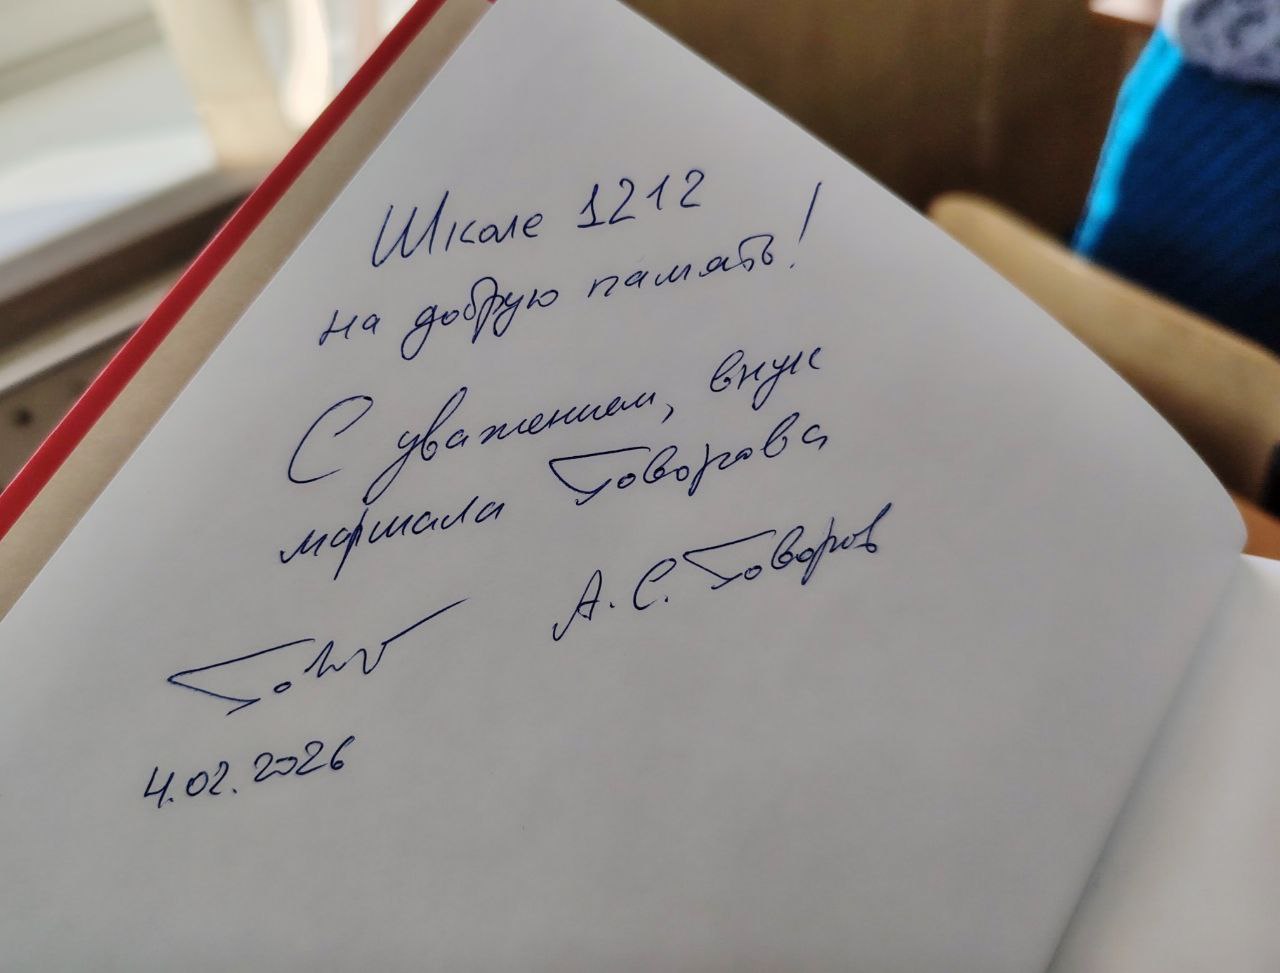 Школе 1212
на добрую память!
С уважением, внук
маршала Говорова
А. С. Говоров
4.02.2026